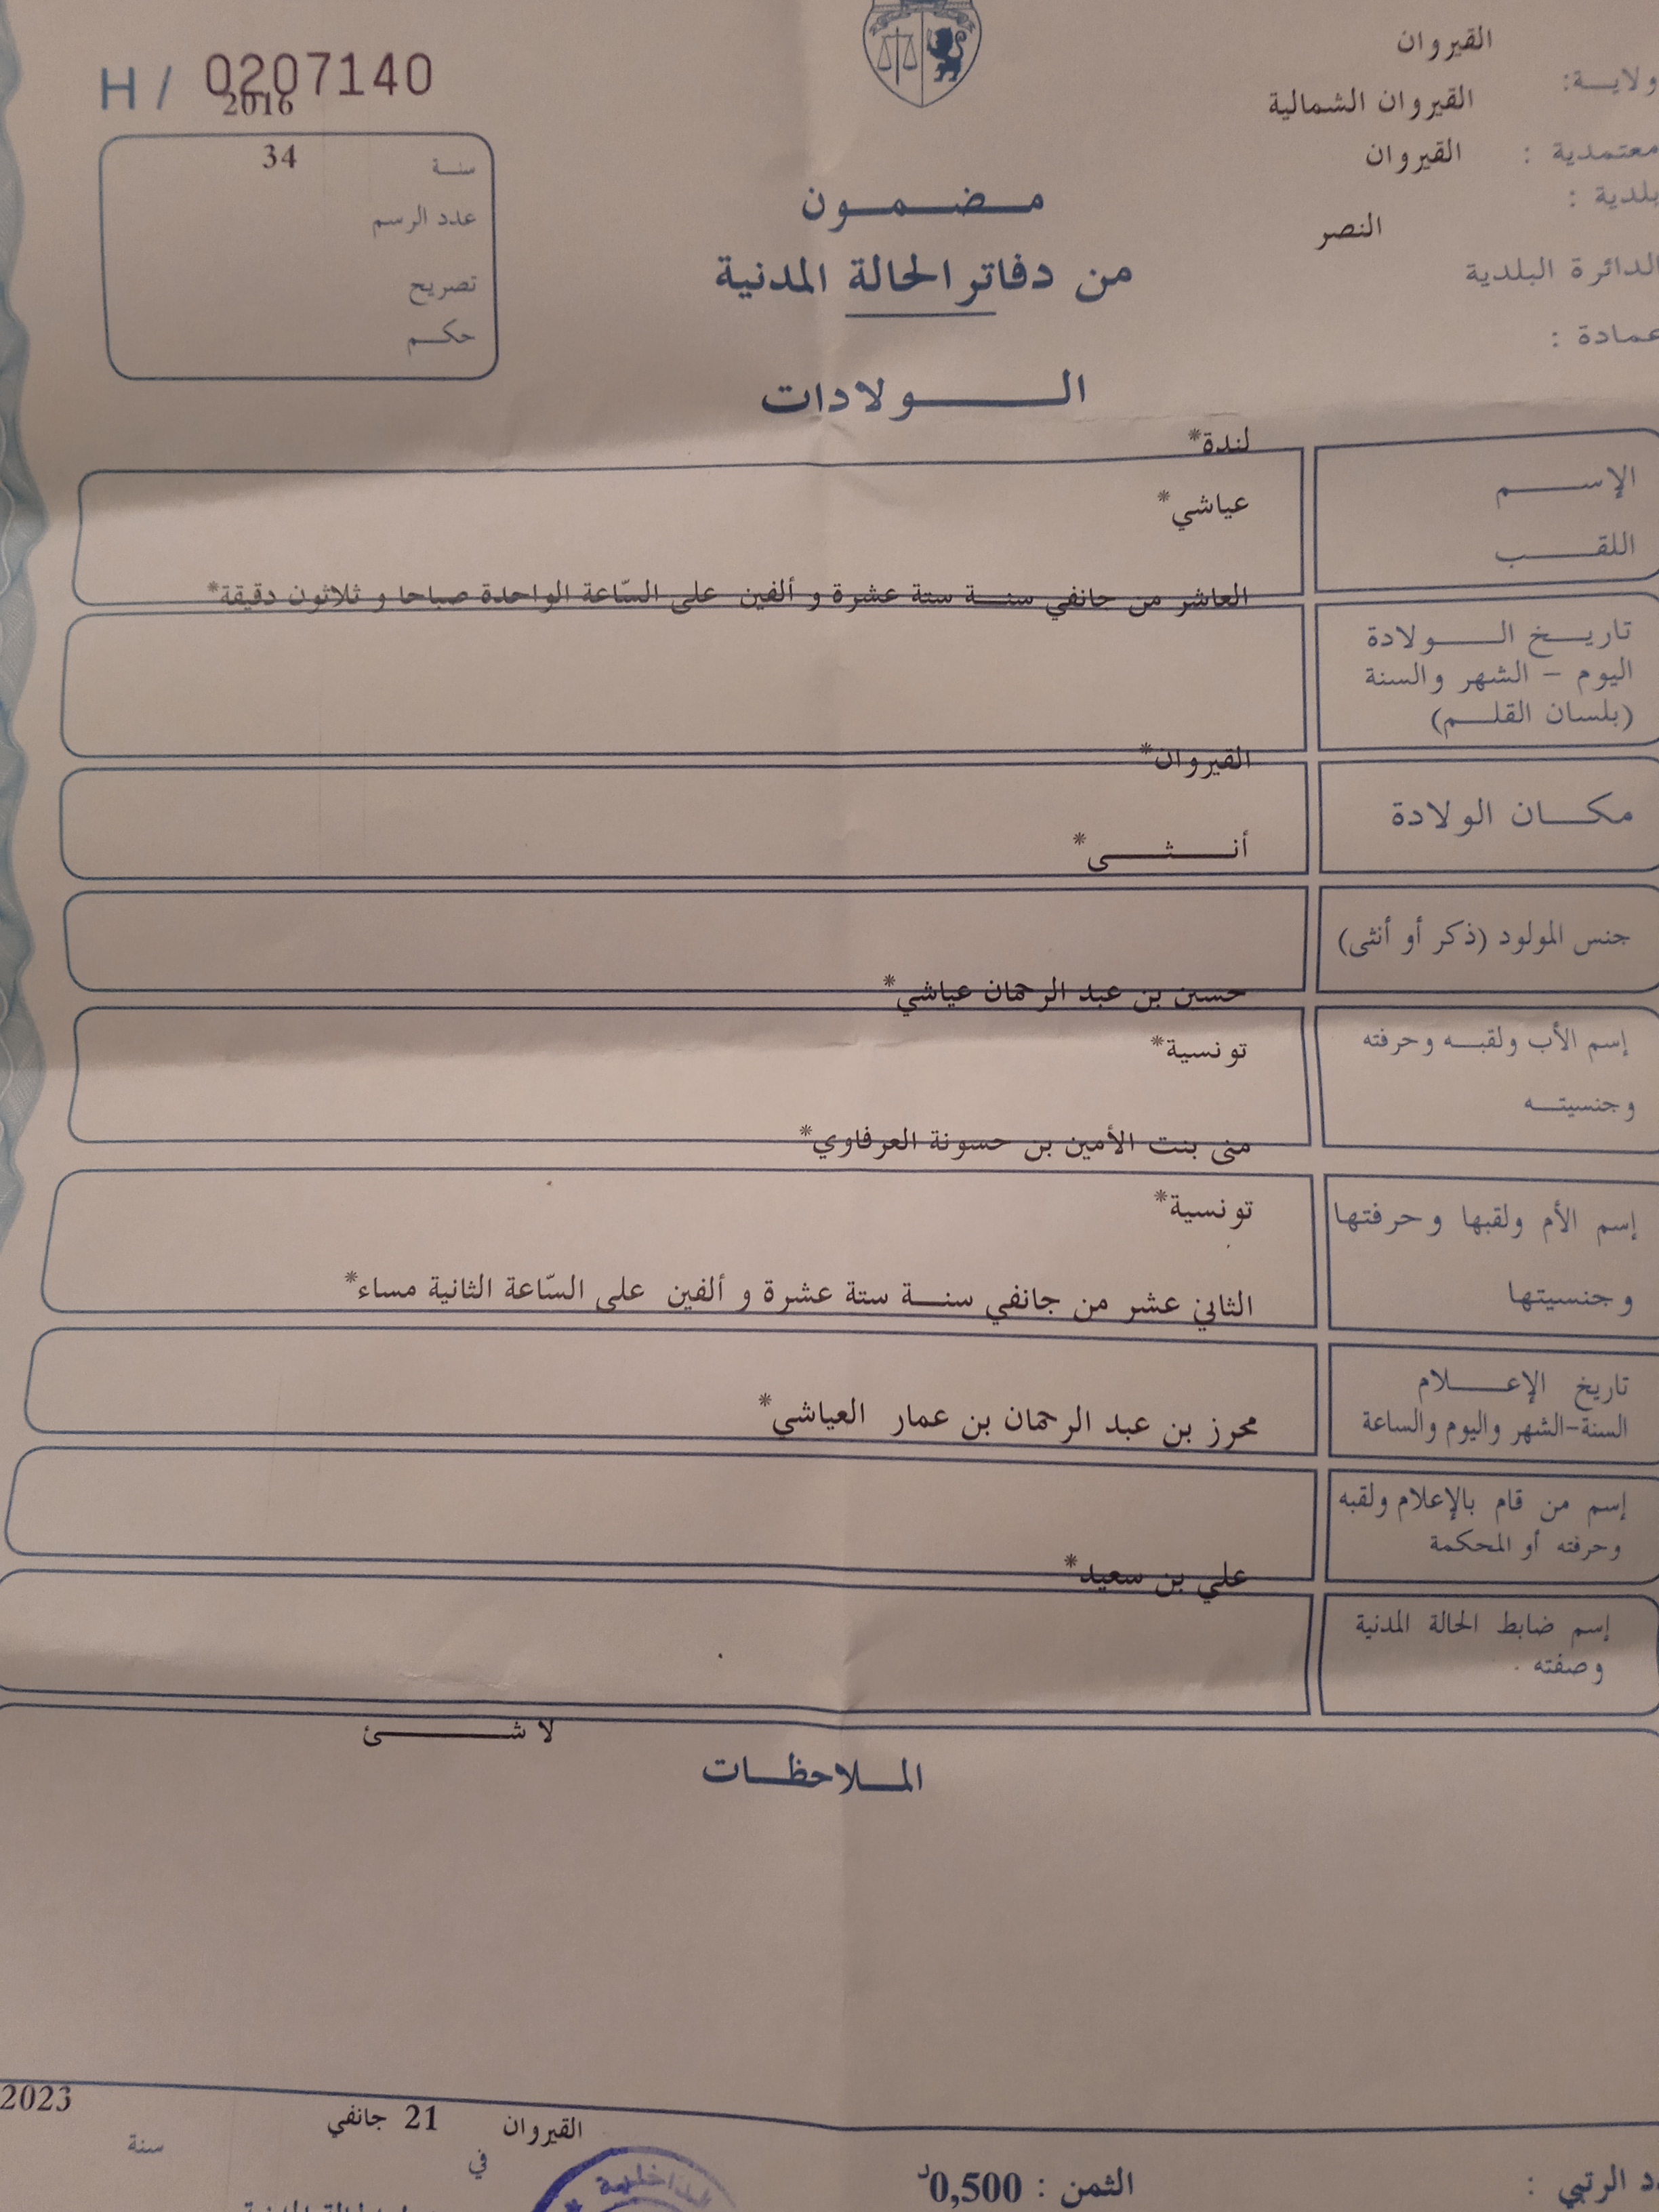 القيروان
ولايـــة:
القيروان الشمالية
معتمدية :
القيروان
بلدية :
النصر
الدائرة البلدية
عمادة :
H / 0207140
2016
34
سنـــة
عدد الرسم
تصريح
حكـــم
مـــضـــمـــون
من دفاتر الحالة المدنية
الـــولادات
لندة*
الإســـم
عياشي*
اللقـــب
العاشر من جانفي سنـــة ستة عشرة و ألفين على السّاعة الواحدة صباحا و ثلاثون دقيقة*
تاريـــخ الـــولادة
اليوم – الشهر والسنة
(بلسان القلـــم)
القيروان*
مكـــان الولادة
أنـــثـــى*
جنس المولود (ذكر أو أنثى)
حسين بن عبد الرحمان عياشي*
إسم الأب ولقبـــه وحرفته
تونسية*
وجنسيتـــه
منى بنت الأمين بن حسونة العرفاوي*
إسم الأم ولقبها وحرفتها
تونسية*
وجنسيتها
الثاني عشر من جانفي سنـــة ستة عشرة و ألفين على السّاعة الثانية مساء*
تاريخ الإعـــلام
السنة-الشهر واليوم والساعة
محرز بن عبد الرحمان بن عمار العياشي*
إسم من قام بالإعلام ولقبه
وحرفته أو المحكمة
علي بن سعيد*
إسم ضابط الحالة المدنية
وصفته
لا شـــئ
المـــلاحظـــات
القيروان 21 جانفي 2023
في سنة
الثمن : 0,500د
الرتبي :